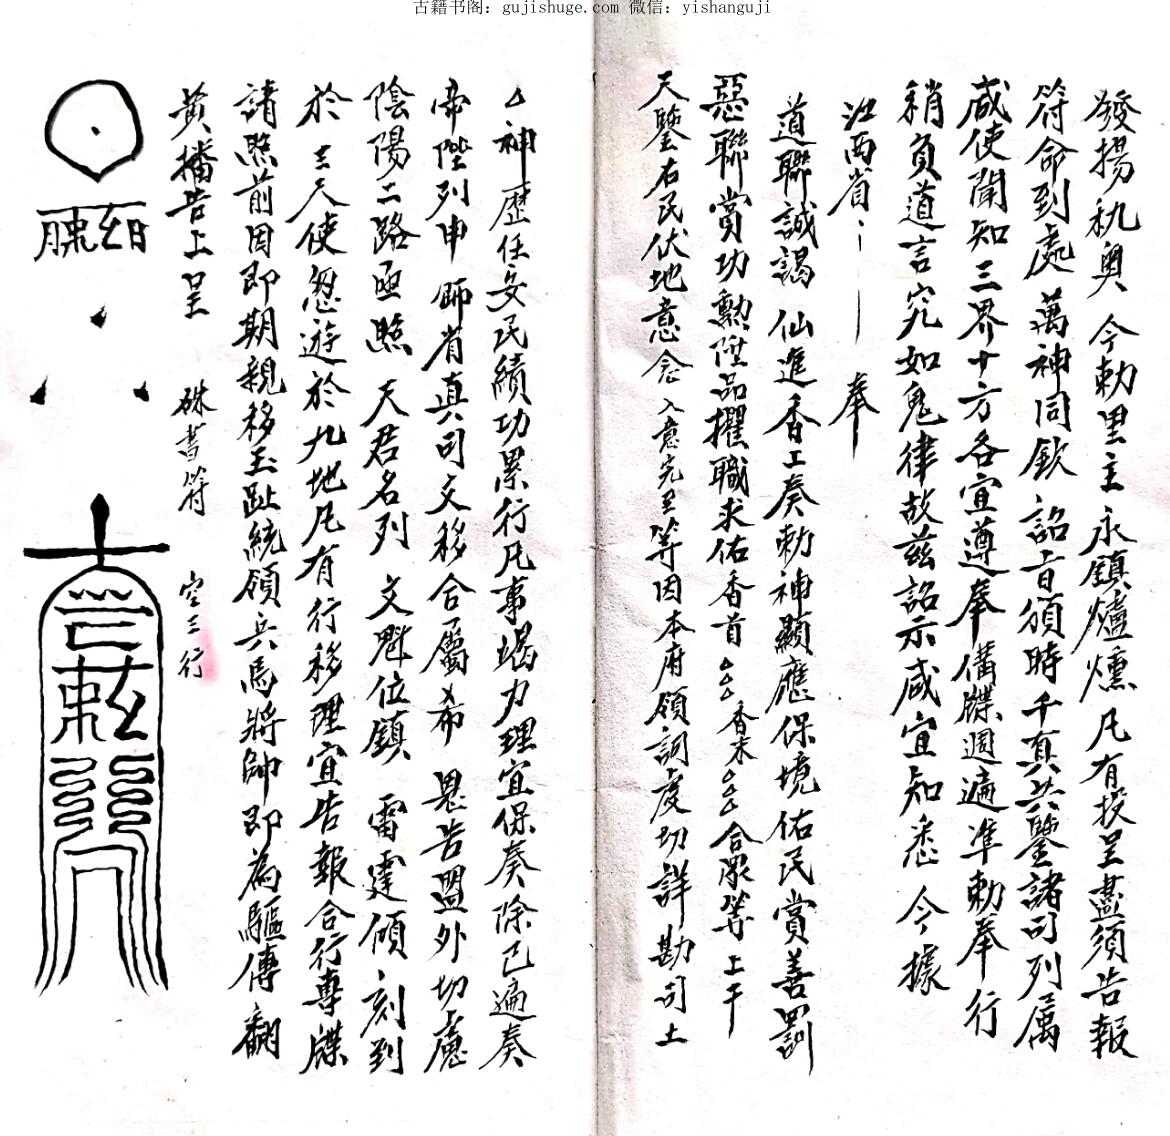 古籍书阁：gujishuge.com 微信：yishanguji
發揚秇奧 今勅里主永鎮爐燻凡有投呈盡須告報
符命到處萬神同欽 詔旨頒時千真共鑒諸司列属
咸使聞知三界十方各宜遵奉 僃牒週遍凖勅奉行
稍負道言究如鬼律故茲詔示咸宜知悉 今據
江西省 奉
道聯誠謁 仙進香上奏勅神顯應保境佑民賞善罰
惡聯賞功勲陞品擢職求佑香首△△△香末△△△合眾等上干
天鑒右民伏地意念入意完至等因本府領詞虔切詳勘司土
△神歷任安民績功累行凡事竭力理宜保奏除已遍奏
帝陛列申 師省真司文移合屬希 恩告盟外切慮
陰陽二路亟照 天君名列 文魁位鎮 雷霆傾刻到
於三天使忽遊於九地凢有行移理宜告報合行專牒
請照前因即期親移玉趾統領兵馬將帥即為驅傳翻
黄播告上呈 硃書符 空三行